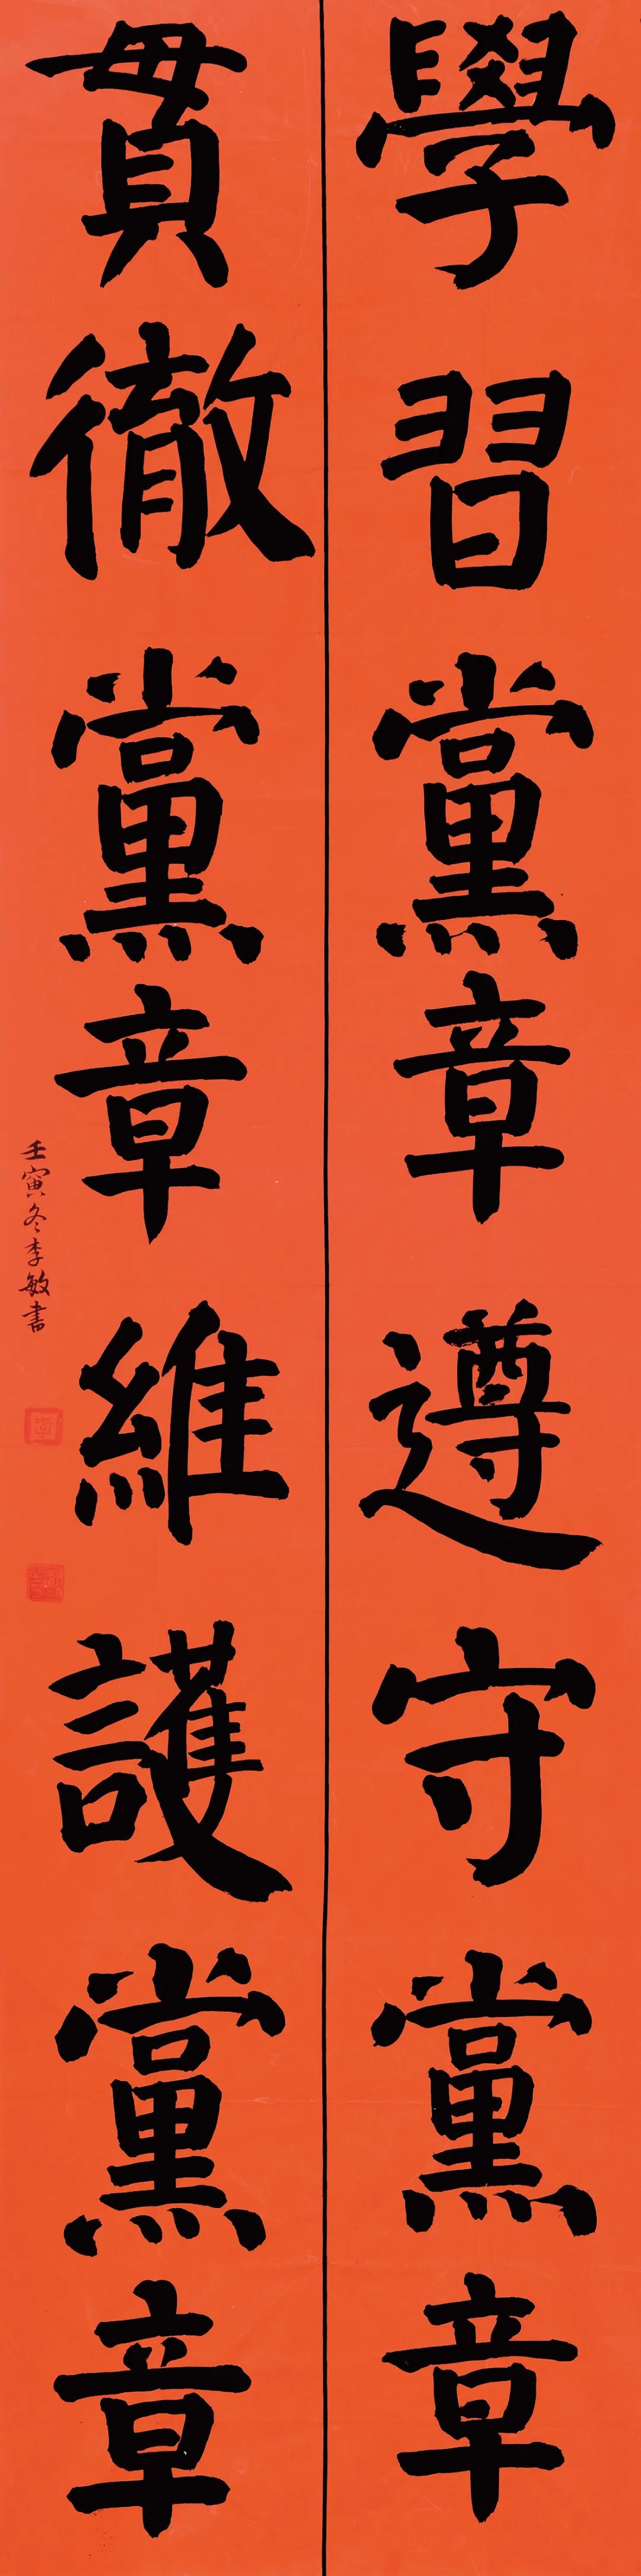 學習黨章遵守黨章
貫徹黨章維護黨章
壬寅冬李敏書